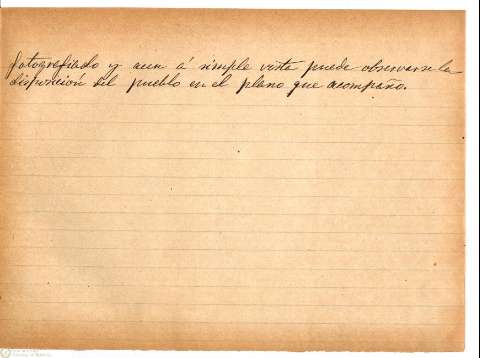 fotografiado y aun á simple vista puede observarse la
disposición del pueblo en el plano que acompaño.